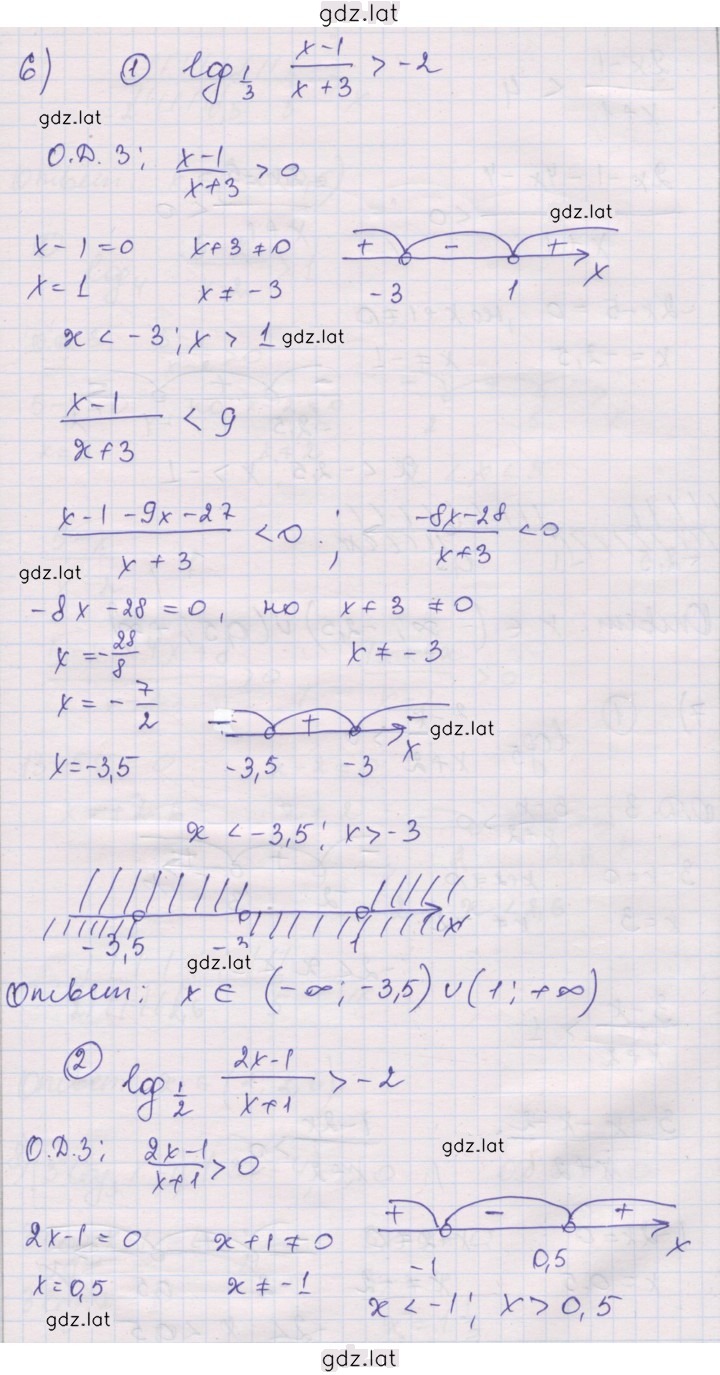 gdz.lat
6) ① log_{1/3} (x-1)/(x+3) > -2
gdz.lat
О.Д.З; (x-1)/(x+3) > 0
gdz.lat
x-1=0 x+3≠0 + - + x
x=1 x≠-3 -3 1
x < -3; x > 1 gdz.lat
(x-1)/(x+3) < 9
(x-1-9x-27)/(x+3) < 0; (-8x-28)/(x+3) < 0
gdz.lat
-8x-28=0, но x+3≠0
x=-28/8 x≠-3
x=-7/2 - + - x gdz.lat
x=-3,5 -3,5 -3
x < -3,5; x > -3
x
-3,5 -3 1
gdz.lat
Ответ: x ∈ (-∞; -3,5) ∪ (1; +∞)
② log_{1/2} (2x-1)/(x+1) > -2
gdz.lat
О.Д.З; (2x-1)/(x+1) > 0
+ - + x
2x-1=0 x+1≠0 -1 0,5
x=0,5 x≠-1 x < -1; x > 0,5
gdz.lat
gdz.lat